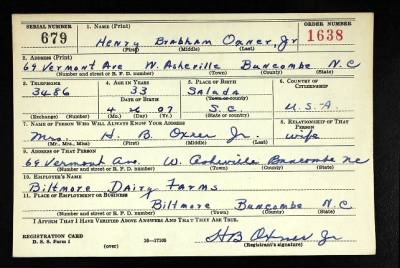 SERIAL NUMBER
679
1. NAME (Print)
Henry Brabham Oxner, Jr
(First) (Middle) (Last)
ORDER NUMBER
1638
2. ADDRESS (Print)
69 Vermont Ave W. Asheville Buncombe N.C
(Number and street or R. F. D. number) (Town) (County) (State)
3. TELEPHONE
3486
(Exchange) (Number)
4. AGE IN YEARS
33
DATE OF BIRTH
4 07
(Mo.) (Day) (Yr.)
5. PLACE OF BIRTH
Saluda
(Town or county)
S.C.
(State or country)
6. COUNTRY OF CITIZENSHIP
U.S.A.
7. NAME OF PERSON WHO WILL ALWAYS KNOW YOUR ADDRESS
Mrs. H. B. Oxner Jr.
(Mr., Mrs., Miss) (First) (Middle) (Last)
8. RELATIONSHIP OF THAT PERSON
wife
9. ADDRESS OF THAT PERSON
69 Vermont Ave. W. Asheville Buncombe NC
(Number and street or R. F. D. number) (Town) (County) (State)
10. EMPLOYER'S NAME
Biltmore Dairy Farms
11. PLACE OF EMPLOYMENT OR BUSINESS
Biltmore Buncombe N.C
(Number and street or R. F. D. number) (Town) (County) (State)
I AFFIRM THAT I HAVE VERIFIED ABOVE ANSWERS AND THAT THEY ARE TRUE.
REGISTRATION CARD
D. S. S. Form 1
(over)
16-17105
H B Oxner Jr
(Registrant's signature)